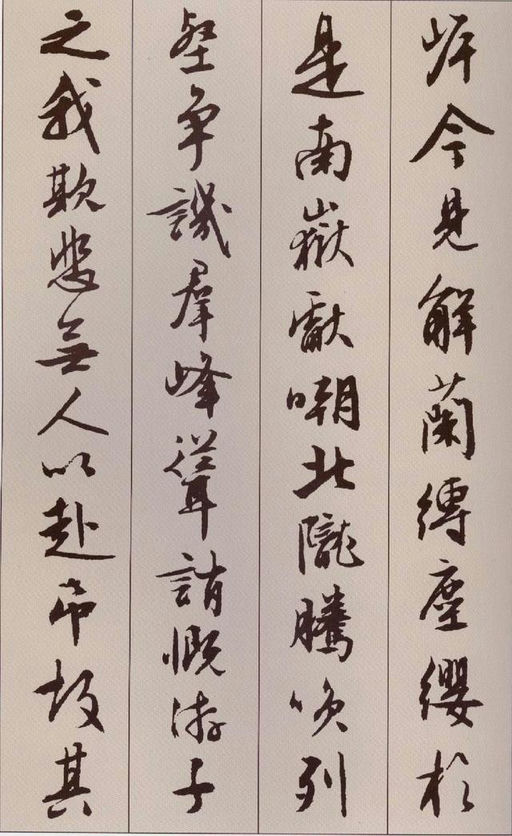 岸今見解蘭縛塵纓於
是南嶽獻嘲北隴騰咲列
壑争譏羣峰聳誚慨游子
之我欺悲無人以赴吊故其